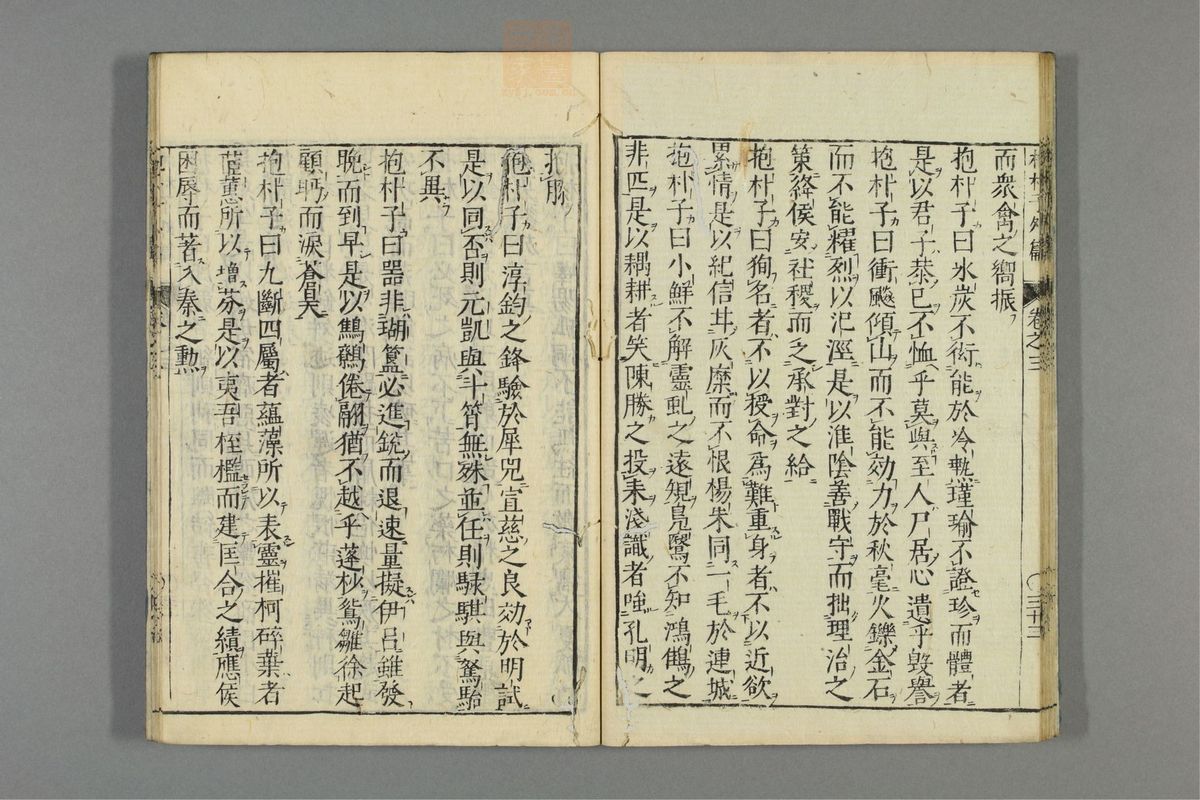 而衆禽之響振
抱朴子曰氷炭不衒能於冷熱瑾瑜不證珍而體著
是以君子恭已不恤乎莫與至人尸居心遺乎毀譽
抱朴子曰衝飈傾山而不能効力於秋毫火鑠金石
而不能耀烈以汜溼是以淮陰善戰守而拙理治之
策絳侯安社稷而乏承對之給
抱朴子曰狥名者不以授命爲難重身者不以近欲
累情是以紀信甘灰糜而不恨楊朱同一毛於連城
抱朴子曰小鮮不解靈虬之遠規鳧鷖不知鴻鵠之
非匹是以耦耕者笑陳勝之投耒淺識者嗤孔明之
抱膝
抱朴子曰淳鈞之鋒驗於犀兕宣慈之良効於明試
是以同否則元凱與斗筲無殊並任則騄騏與駑駘
不異
抱朴子曰器非瑚簋必進銳而退速量擬伊呂雖發
晚而到早是以鷦鷯倦翮猶不越乎蓬杪鴛雛徐起
顧眄而淚蒼昊
抱朴子曰九斷四屬者蘊藻所以表靈摧柯碎葉者
茝蕙所以增芬是以夷吾桎檻而建匡合之績應侯
困辱而著入秦之勲